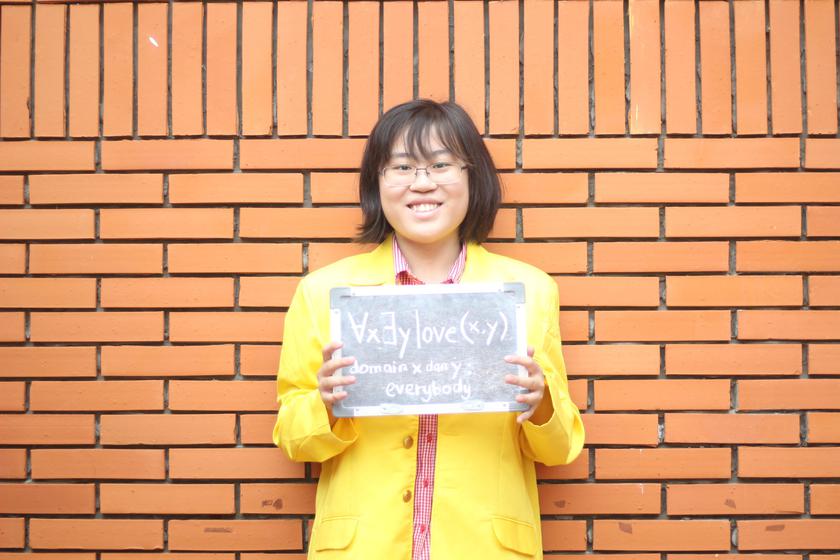 ∀x∃y love(x,y)
domain x dan y:
everybody